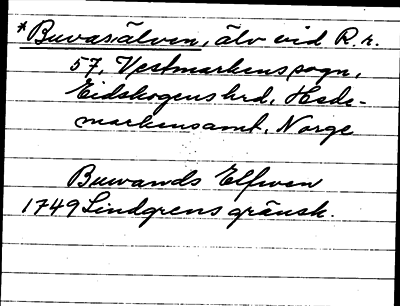 *Buvasälven, älv vid R.r.
57, Vestmarkens sogn,
Eidskogens hrd, Hede-
markensamt, Norge
Buwands Elfwen
1749 Lindgrens gränsk.